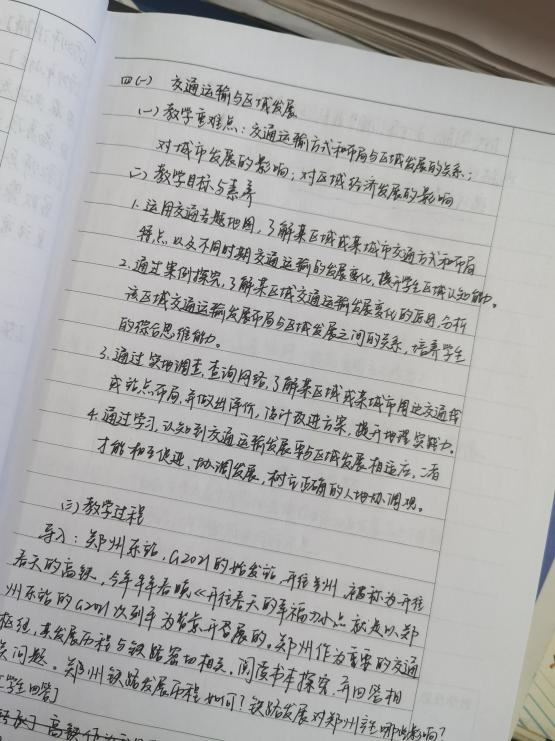 四(一) 交通运输与区域发展
(一) 教学重难点：交通运输方式和布局与区域发展的关系；
对城市发展的影响；对区域经济发展的影响
(二) 教学目标与素养
1. 运用交通专题地图，了解某区域或某城市交通方式和布局
特点以及不同时期交通运输的发展变化，提升学生区域认知能力。
2. 通过案例探究，了解某区域交通运输发展变化的原因，分析
该区域交通运输发展布局与区域发展之间的关系，培养学生
的综合思维能力。
3. 通过实地调查、查询网络，了解某区域或某城市周边交通线
或站点布局，并做出评价，设计改进方案，提升地理实践力。
4. 通过学习，认知到交通运输发展要与区域发展相适应，二者
才能相互促进、协调发展，树立正确的人地协调观。
(三) 教学过程
导入：郑州东站，G2021的始发站，开往 州，被称为开往
春天的高铁，今年年春晚《开往春天的幸福》小品就是以郑
州东站的G2001次列车为背景开展的，郑州作为重要的交通
枢纽，其发展历程与铁路密切相关，阅读书本探究，并回答相
关问题。郑州铁路发展历程如何？铁路发展对郑州产生哪些影响？
[学生回答]
高铁作为